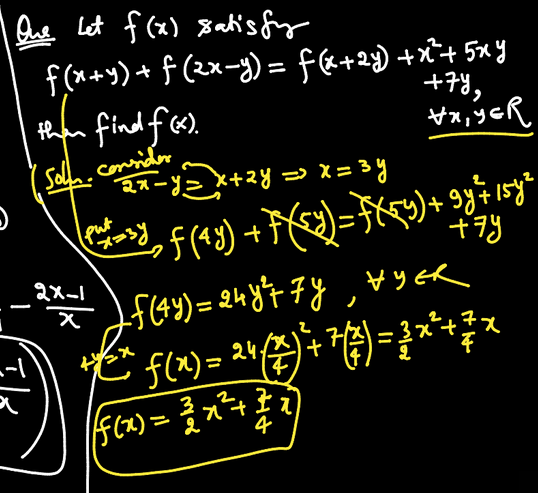 Que Let f(x) satisfy
f(x+y) + f(2x-y) = f(x+2y) + x² + 5xy
+7y,
∀x, y ∈ R
then find f(x).
Soln. consider
2x-y = x+2y ⇒ x = 3y
put
x=3y
f(4y) + f(5y) = f(5y) + 9y² + 15y²
+ 7y
f(4y) = 24y² + 7y , ∀ y ∈ R
- 2x-1
x
4y=x
f(x) = 24·(x/4)² + 7(x/4) = 3/2 x² + 7/4 x
x-1
x
f(x) = 3/2 x² + 7/4 x